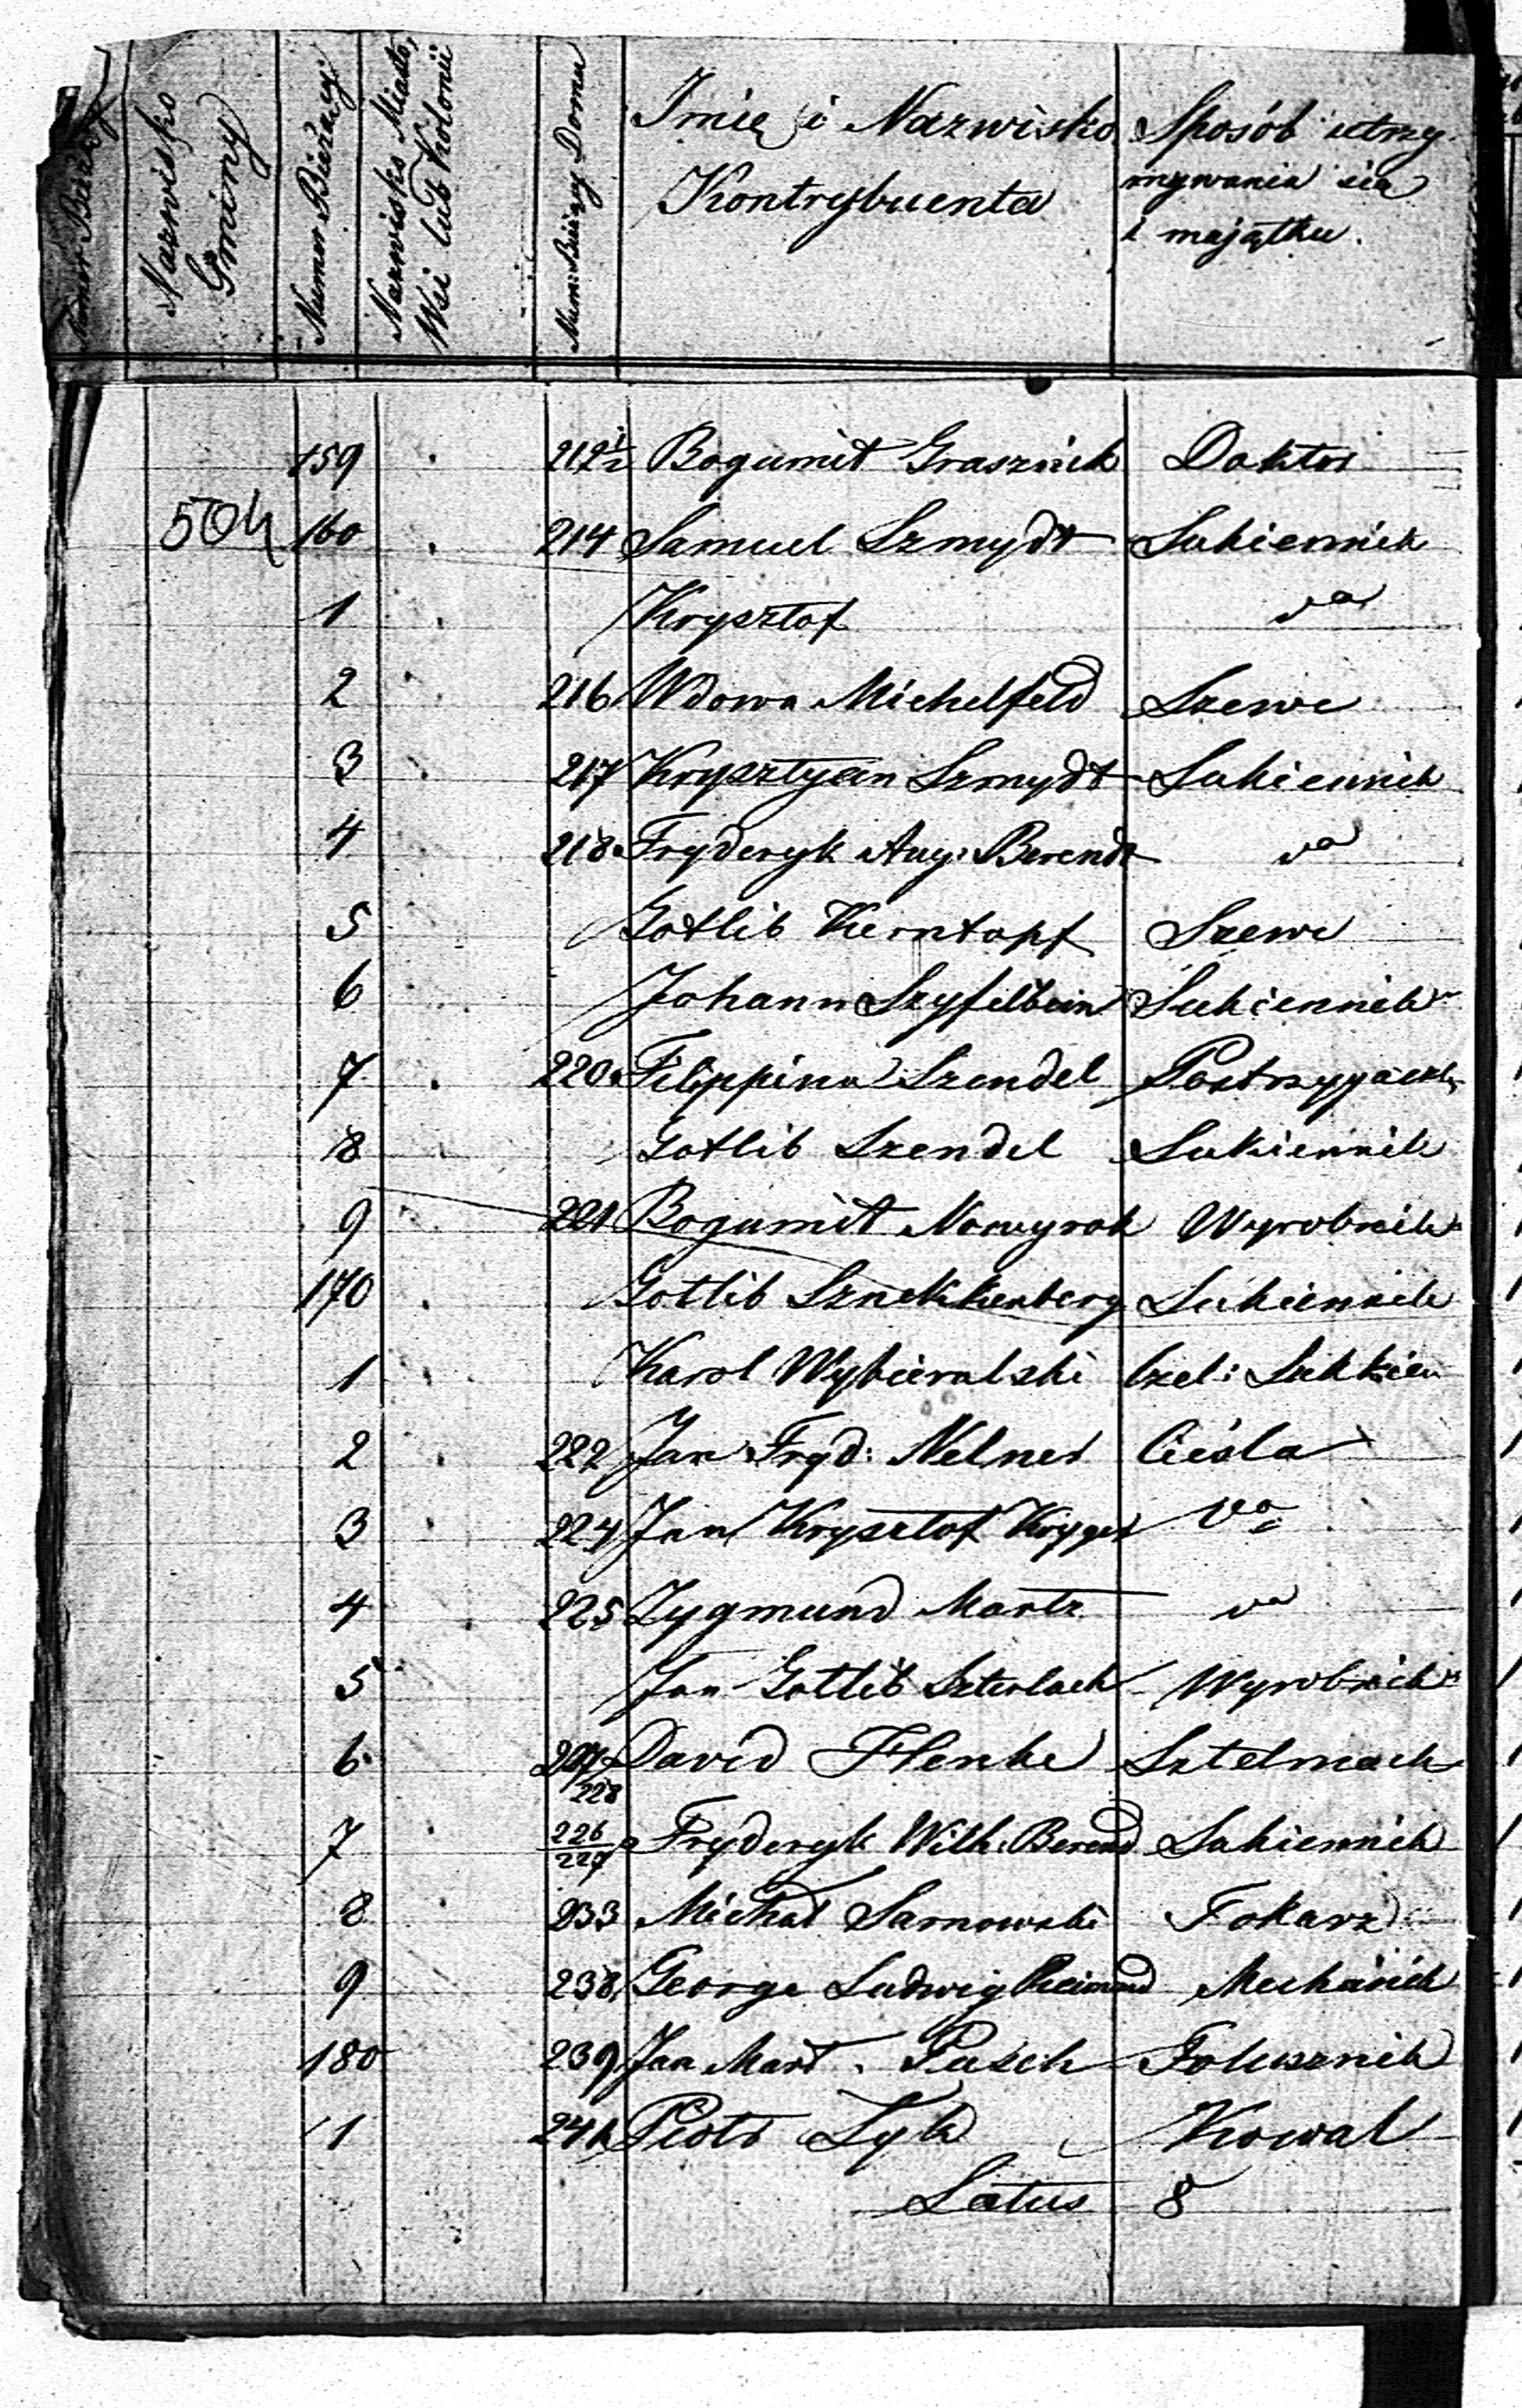 Numer Bieżący
Nazwisko Gminy
Numer Bieżący
Nazwisko Miasta, Wsi lub Kolonii
Num: Bieżący Domu
Imię i Nazwisko Kontrybuenta
Sposób utrzymywania się i majątku.
159 212½ Bogumił Grasznick Doktor
504 160 214 Samuel Szmydt Sukiennik
1 Krysztof va
2 216 Wdowa Michelfeld Szewc
3 217 Krysztyan Szmydt Sukiennik
4 218 Fryderyk Aug: Berendt va
5 Gotlib Kerntopf Szewc
6 Johann Szyfelbein Sukiennik
7 220 Filippina Szendel
8 Gotlib Szendel Sukiennik
9 221 Bogumił Nawyrok Wyrobnik
170 Gotlib Sznekkenberg Sukiennik
1 Karol Wybieralski Czel: Sukkien
2 222 Jan Fryd: Nelner Cieśla
3 224 Jan Krysztof Kryger va
4 225 Zygmund Martz va
5 Jan Gotlib Szterlach Wyrobnik
6 227/228 David Henke Sztelmach
7 226/227 Fryderyk Wilh: Berend Sukiennik
8 233 Michał Sarnowski Tokarz
9 238 George Ludwig Reimond Mechanik
180 239 Jan Mart. Pasch Foluśznik
1 241 Piotr Zyk Kowal
Latus 8